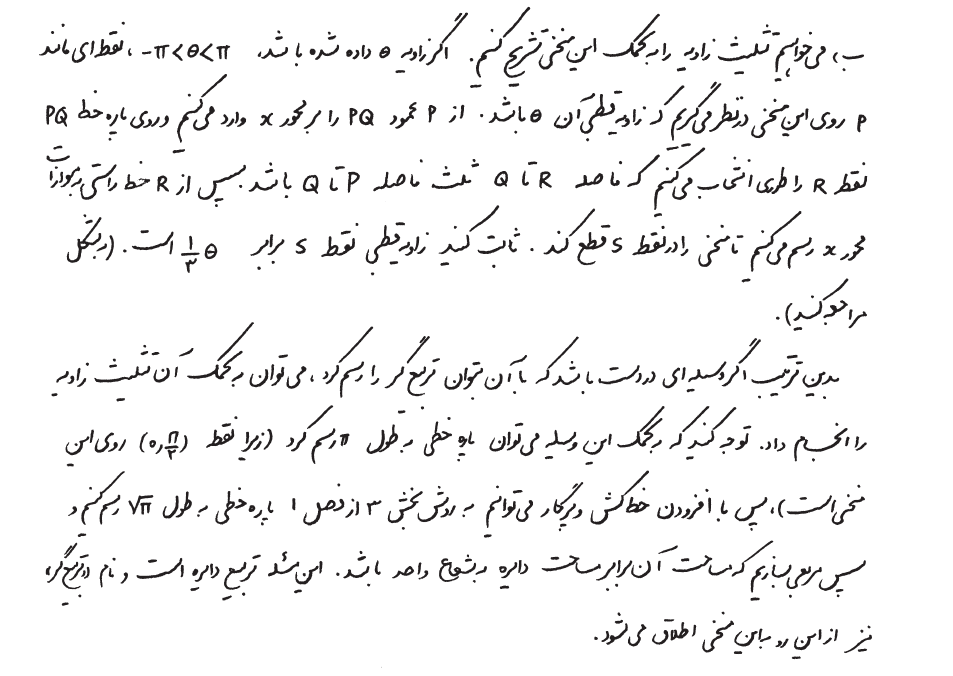 ب) می‌خواهیم تثلیث زاویه را به کمک این منحنی تشریح کنیم. اگر زاویه θ داده شده باشد، -π<θ<π، نقطه‌ای مانند
P روی این منحنی در نظر می‌گیریم که زاویه قطبی آن θ باشد. از P عمود PQ را بر محور x وارد می‌کنیم و روی پاره خط PQ
نقطه R را طوری انتخاب می‌کنیم که فاصله R تا Q ثلث فاصله P تا Q باشد. سپس از R خط راستی به موازات
محور x رسم می‌کنیم تا منحنی را در نقطه S قطع کند. ثابت کنید زاویه قطبی نقطه S برابر ۱/۳ θ است. (به شکل
مراجعه کنید).
بدین ترتیب اگر وسیله‌ای در دست باشد که با آن بتوان تربیع گر را رسم کرد، می‌توان به کمک آن تثلیث زاویه
را انجام داد. توجه کنید که به کمک این وسیله می‌توان پاره خطی به طول π رسم کرد (زیرا نقطه (۰,π/۲) روی این
منحنی است)، پس با افزودن خط کش و پرگار می‌توانیم به روش بخش ۳ از فصل ۱ پاره خطی به طول √π رسم کنیم و
سپس مربعی بسازیم که مساحت آن برابر مساحت دایره به شعاع واحد باشد. این مسئله تربیع دایره است و نام «تربیع گر»
نیز از این رو به این منحنی اطلاق می‌شود.